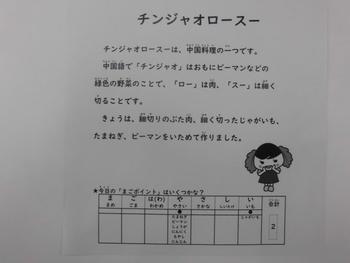 チンジャオロースー
チンジャオロースーは、中国料理の一つです。
中国語で「チンジャオ」はおもにピーマンなどの
緑色の野菜のことで、「ロー」は肉、「スー」は細く
切ることです。
きょうは、細切りのぶた肉、細く切ったじゃがいも、
たまねぎ、ピーマンをいためて作りました。
★今日の「まごポイント」はいくつかな?
ま ご は(わ) や さ し い 合計
まめ ごま わかめ やさい さかな しいたけ いも
● ●
たまねぎ じゃがいも
ピーマン
しょうが
にんにく
もやし
にんじん
2